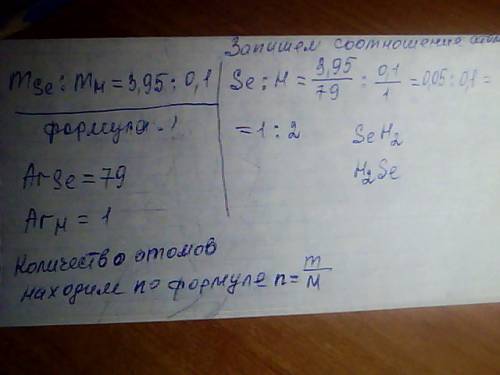 Запишем соотношение
mSe : mH = 3,95 : 0,1
формула - ?
ArSe = 79
ArH = 1
Se : H = 3,95/79 : 0,1/1 = 0,05 : 0,1 =
= 1 : 2
SeH₂
H₂Se
Количество атомов
находим по формуле n = m/M